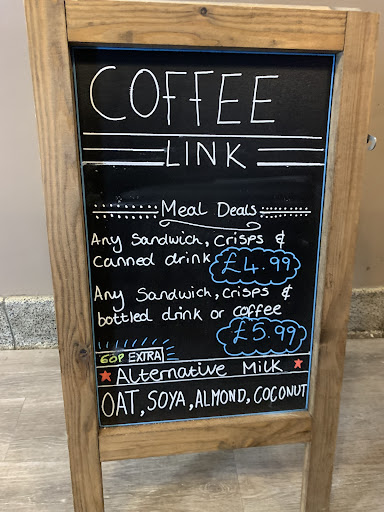 COFFEE
LINK
Meal Deals
Any Sandwich, Crisps &
Canned drink £4.99
Any Sandwich, Crisps &
bottled drink or coffee
£5.99
60P EXTRA
Alternative Milk
OAT, SOYA, ALMOND, COCONUT